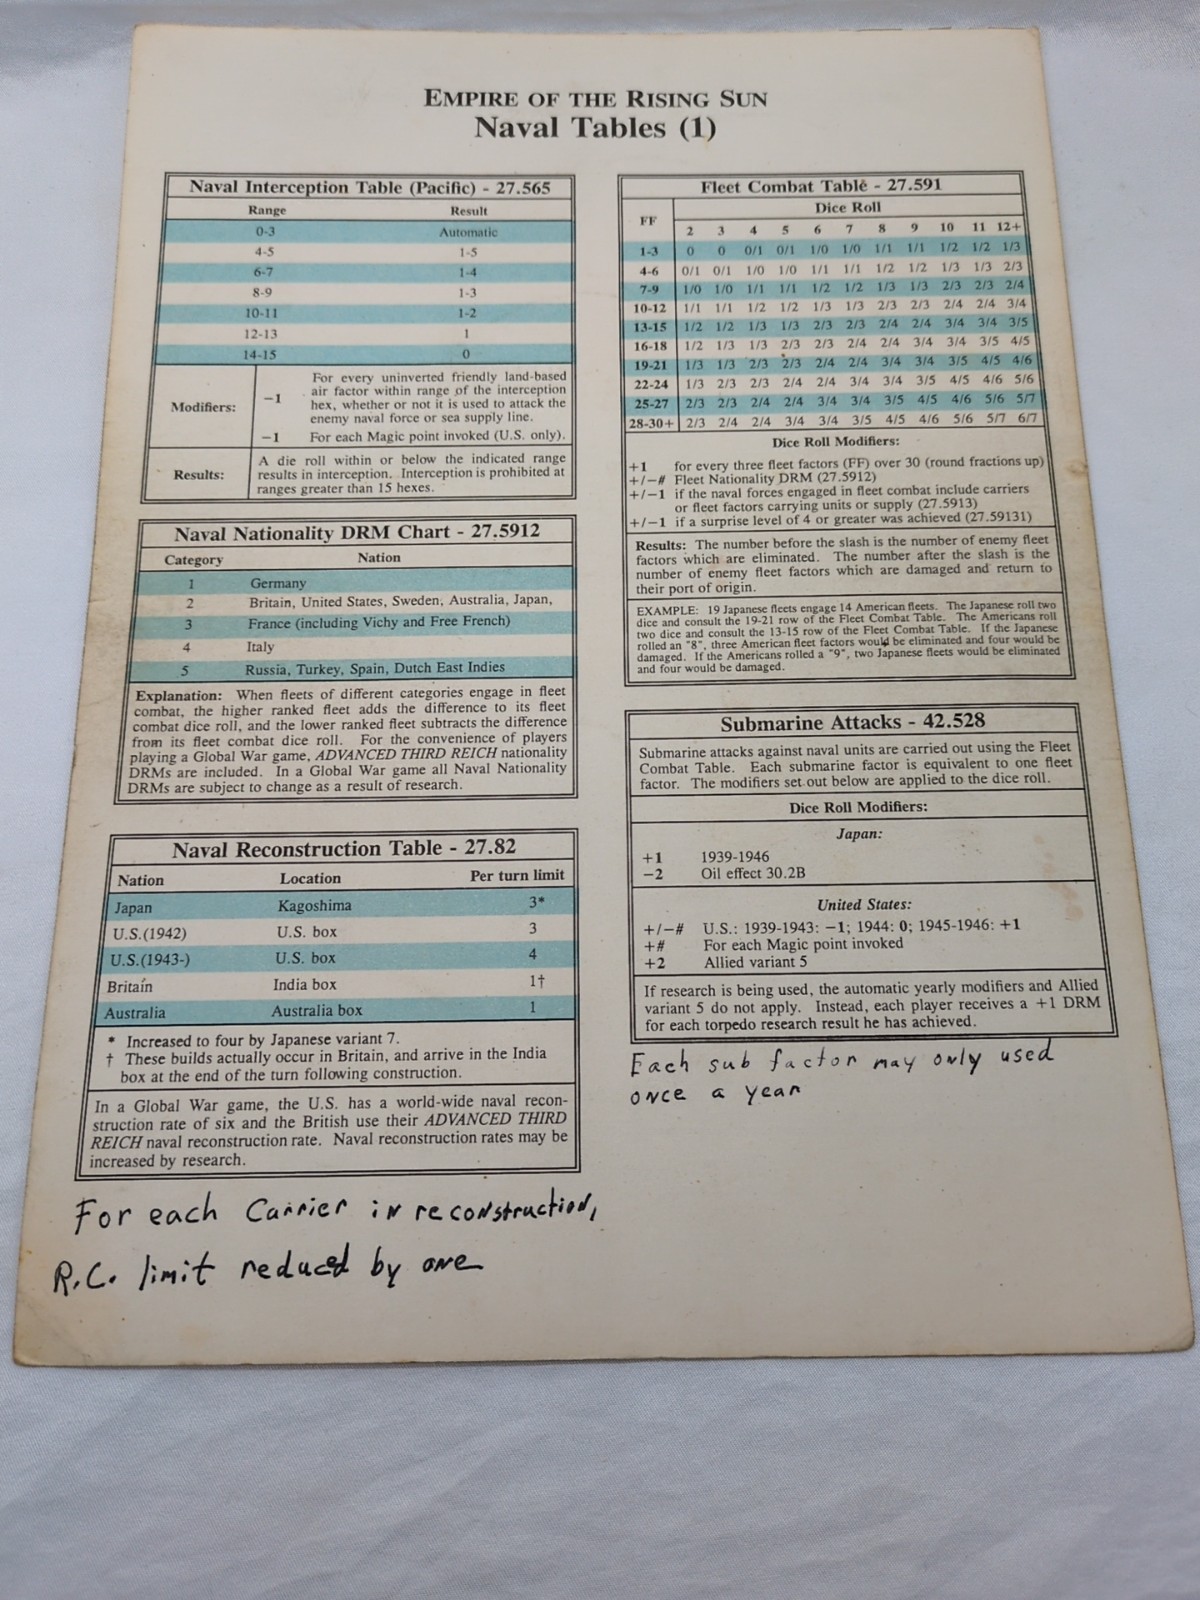 EMPIRE OF THE RISING SUN
Naval Tables (1)
Naval Interception Table (Pacific) - 27.565
Range Result
0-3 Automatic
4-5 1-5
6-7 1-4
8-9 1-3
10-11 1-2
12-13 1
14-15 0
Modifiers:
−1 For every uninverted friendly land-based
air factor within range of the interception
hex, whether or not it is used to attack the
enemy naval force or sea supply line.
−1 For each Magic point invoked (U.S. only).
Results:
A die roll within or below the indicated range
results in interception. Interception is prohibited at
ranges greater than 15 hexes.
Naval Nationality DRM Chart - 27.5912
Category Nation
1 Germany
2 Britain, United States, Sweden, Australia, Japan,
3 France (including Vichy and Free French)
4 Italy
5 Russia, Turkey, Spain, Dutch East Indies
Explanation: When fleets of different categories engage in fleet
combat, the higher ranked fleet adds the difference to its fleet
combat dice roll, and the lower ranked fleet subtracts the difference
from its fleet combat dice roll. For the convenience of players
playing a Global War game, ADVANCED THIRD REICH nationality
DRMs are included. In a Global War game all Naval Nationality
DRMs are subject to change as a result of research.
Naval Reconstruction Table - 27.82
Nation Location Per turn limit
Japan Kagoshima 3*
U.S.(1942) U.S. box 3
U.S.(1943-) U.S. box 4
Britain India box 1†
Australia Australia box 1
* Increased to four by Japanese variant 7.
† These builds actually occur in Britain, and arrive in the India
box at the end of the turn following construction.
In a Global War game, the U.S. has a world-wide naval recon-
struction rate of six and the British use their ADVANCED THIRD
REICH naval reconstruction rate. Naval reconstruction rates may be
increased by research.
For each Carrier in reconstruction,
R.C. limit reduced by one
Fleet Combat Table - 27.591
FF Dice Roll
2 3 4 5 6 7 8 9 10 11 12+
1-3 0 0 0/1 0/1 1/0 1/0 1/1 1/1 1/2 1/2 1/3
4-6 0/1 0/1 1/0 1/0 1/1 1/1 1/2 1/2 1/3 1/3 2/3
7-9 1/0 1/0 1/1 1/1 1/2 1/2 1/3 1/3 2/3 2/3 2/4
10-12 1/1 1/1 1/2 1/2 1/3 1/3 2/3 2/3 2/4 2/4 3/4
13-15 1/2 1/2 1/3 1/3 2/3 2/3 2/4 2/4 3/4 3/4 3/5
16-18 1/2 1/3 1/3 2/3 2/3 2/4 2/4 3/4 3/4 3/5 4/5
19-21 1/3 1/3 2/3 2/3 2/4 2/4 3/4 3/4 3/5 4/5 4/6
22-24 1/3 2/3 2/3 2/4 2/4 3/4 3/4 3/5 4/5 4/6 5/6
25-27 2/3 2/3 2/4 2/4 3/4 3/4 3/5 4/5 4/6 5/6 5/7
28-30+ 2/3 2/4 2/4 3/4 3/4 3/5 4/5 4/6 5/6 5/7 6/7
Dice Roll Modifiers:
+1 for every three fleet factors (FF) over 30 (round fractions up)
+/−# Fleet Nationality DRM (27.5912)
+/−1 if the naval forces engaged in fleet combat include carriers
or fleet factors carrying units or supply (27.5913)
+/−1 if a surprise level of 4 or greater was achieved (27.59131)
Results: The number before the slash is the number of enemy fleet
factors which are eliminated. The number after the slash is the
number of enemy fleet factors which are damaged and return to
their port of origin.
EXAMPLE: 19 Japanese fleets engage 14 American fleets. The Japanese roll two
dice and consult the 19-21 row of the Fleet Combat Table. The Americans roll
two dice and consult the 13-15 row of the Fleet Combat Table. If the Japanese
rolled an "8", three American fleet factors would be eliminated and four would be
damaged. If the Americans rolled a "9", two Japanese fleets would be eliminated
and four would be damaged.
Submarine Attacks - 42.528
Submarine attacks against naval units are carried out using the Fleet
Combat Table. Each submarine factor is equivalent to one fleet
factor. The modifiers set out below are applied to the dice roll.
Dice Roll Modifiers:
Japan:
+1 1939-1946
−2 Oil effect 30.2B
United States:
+/−# U.S.: 1939-1943: −1; 1944: 0; 1945-1946: +1
+# For each Magic point invoked
+2 Allied variant 5
If research is being used, the automatic yearly modifiers and Allied
variant 5 do not apply. Instead, each player receives a +1 DRM
for each torpedo research result he has achieved.
Each sub factor may only used
once a year